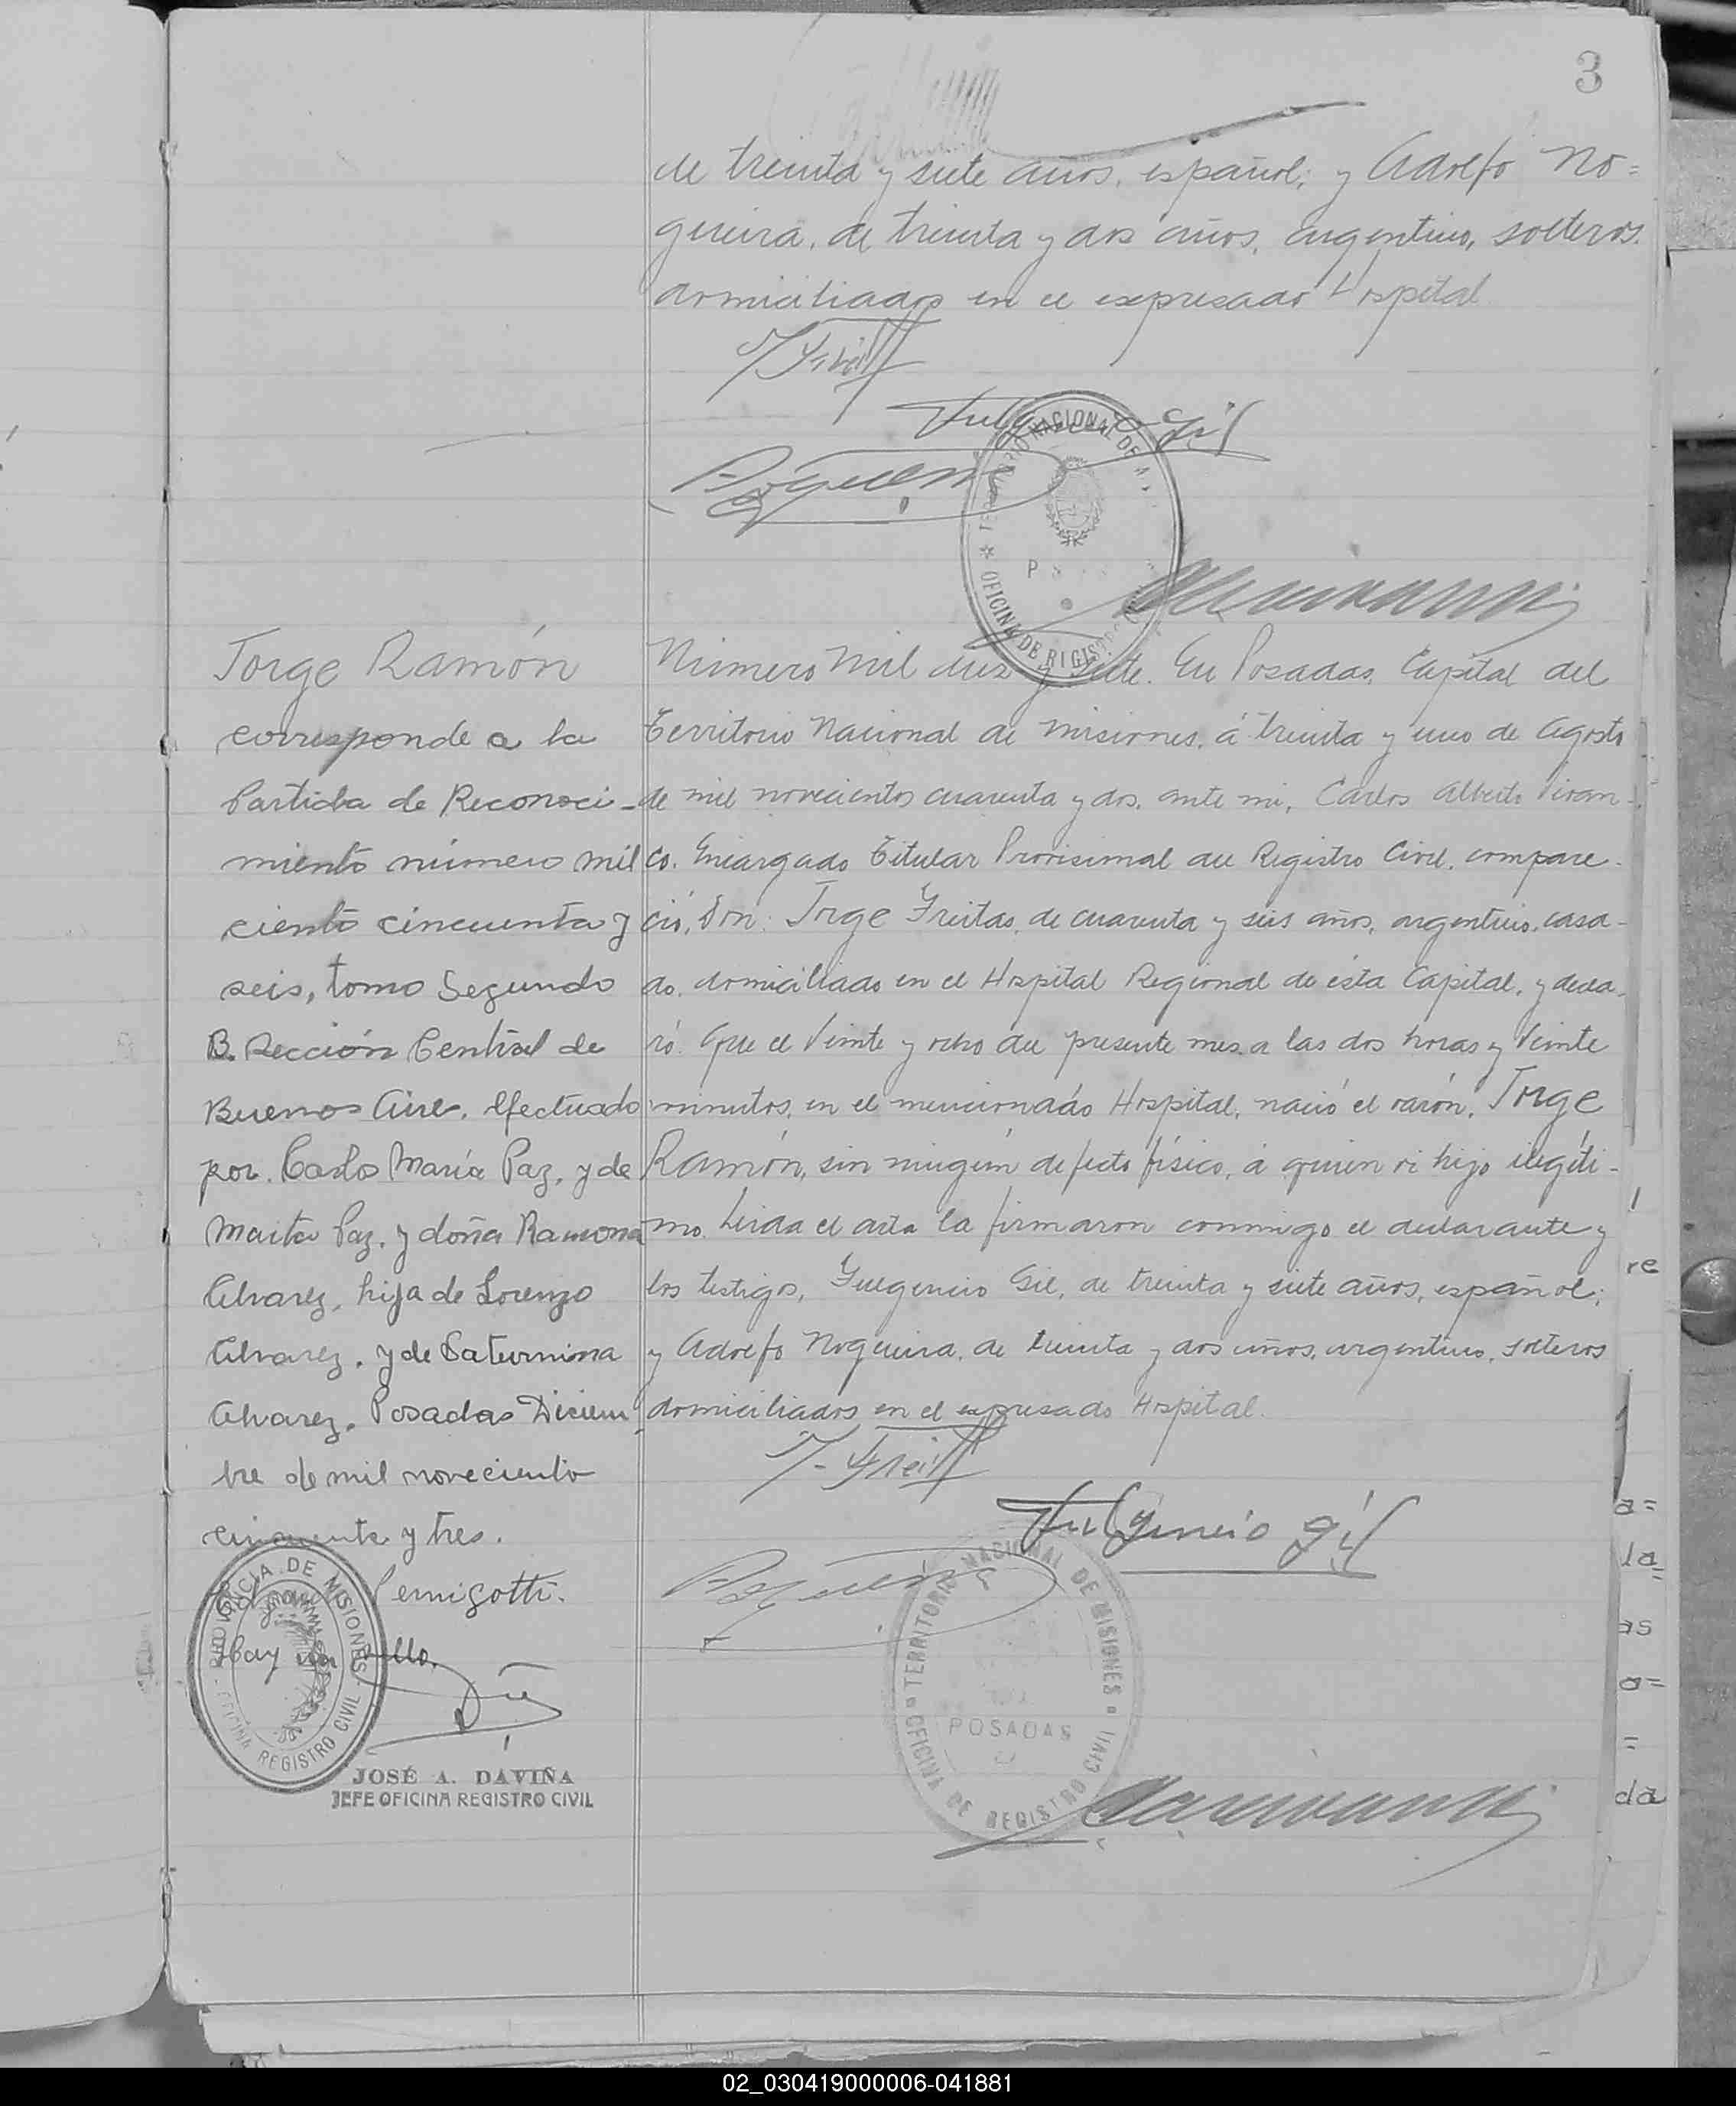 3
de treinta y siete años, español; y Adolfo No=
gueira, de treinta y dos años, argentino, solteros.
domiciliados en el expresado Hospital
Fulgencio Gil
TERRITORIO NACIONAL DE
OFICINA DE REGISTRO
Jorge Ramón
corresponde a la
Partida de Reconoci-
miento número mil
ciento cincuenta y
seis, tomo Segundo
B. Sección Central de
Buenos Aire, efectuado
por. Carlos María Paz, y de
Marta Paz, y doña Ramona
Alvarez, hija de Lorenzo
Alvarez, y de Saturnina
Alvarez. Posadas Diciem
bre de mil noveciento
cincuenta y tres.
Pernigotti.
Hay un sello.
PROVINCIA DE MISIONES
OFICINA REGISTRO CIVIL
JOSÉ A. DAVIÑA
JEFE OFICINA REGISTRO CIVIL
Número Mil diez y siete. En Posadas, Capital del
Territorio Nacional de Misiones, á treinta y uno de Agosto
de mil novecientos cuarenta y dos, ante mi, Carlos Alberto Vivan-
co. Encargado Titular Provisional del Registro Civil, compare-
ció, Don: Jorge Freitas, de cuarenta y seis años, argentino, casa-
do, domiciliado en el Hospital Regional de ésta Capital, y decla-
ró: Que el Veinte y ocho del presente mes a las dos horas y Veinte
minutos, en el mencionado Hospital, nació el varón, Jorge
Ramón, sin ningún defecto físico, á quien vi hijo ilegíti-
mo. Leida el acta la firmaron conmigo el declarante y
los testigos, Fulgencio Gil, de treinta y siete años, español;
y Adolfo Nogueira, de treinta y dos años, argentino, solteros
domiciliados en el expresado Hospital.
J. Freitas
Fulgencio Gil
TERRITORIO NACIONAL DE MISIONES
POSADAS
OFICINA DE REGISTRO CIVIL
re
a=
la
as
a=
=
da
02_030419000006-041881